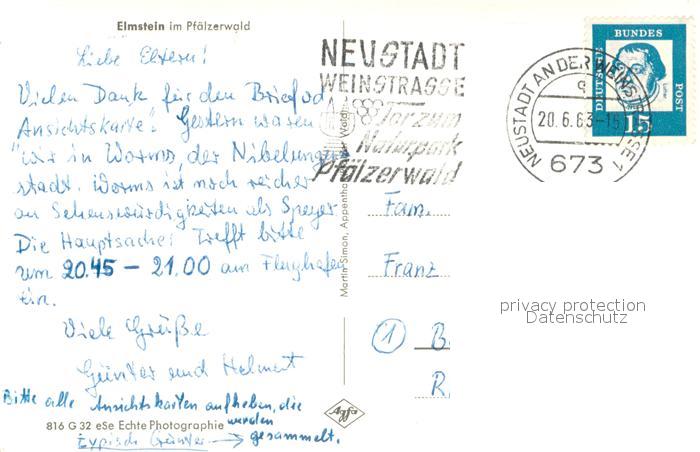 Elmstein im Pfälzerwald
Liebe Eltern!
Vielen Dank für den Brief u d
Ansichtskarte! Gestern waren
wir in Worms, der Nibelungen
stadt. Worms ist noch reicher
an Sehenswürdigkeiten als Speyer.
Die Hauptsache: Trefft bitte
um 20.45 – 21.00 am Flughafen
ein.
Viele Grüße
Günter und Helmut
Bitte alle Ansichtskarten aufheben, die
werden
816 G 32 eSe Echte Photographie
typisch Günter → gesammelt.
Agfa
Martin Simon, Appenthal
NEUSTADT
WEINSTRASSE
Tor zum
Naturpark
Pfälzerwald
NEUSTADT AN DER WEINSTRASSE 1
20.6.63-15
673
DEUTSCHE BUNDESPOST
15
Fam.
Franz
① B
R
privacy protection
Datenschutz